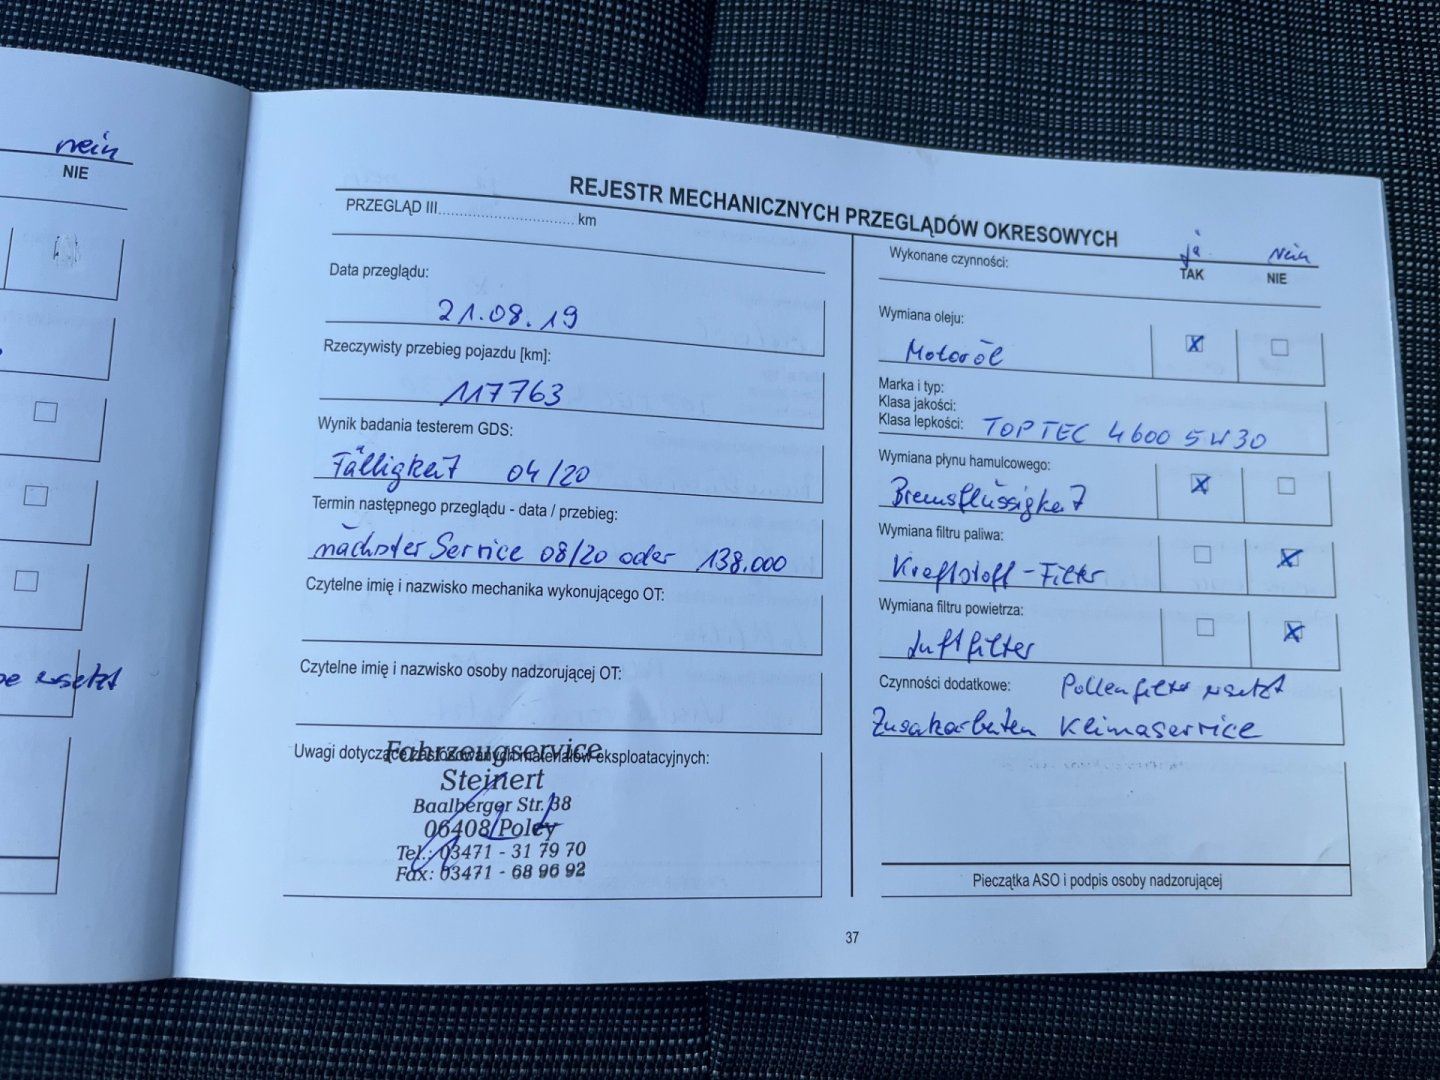 nein
NIE
ersetzt
REJESTR MECHANICZNYCH PRZEGLĄDÓW OKRESOWYCH
PRZEGLĄD III................................ km
Data przeglądu:
21.08.19
Rzeczywisty przebieg pojazdu [km]:
117763
Wynik badania testerem GDS:
Fälligkeit 04/20
Termin następnego przeglądu - data / przebieg:
nächster Service 08/20 oder 138.000
Czytelne imię i nazwisko mechanika wykonującego OT:
Czytelne imię i nazwisko osoby nadzorującej OT:
Uwagi dotyczące zastosowanych materiałów eksploatacyjnych:
Fahrzeugservice
Steinert
Baalberger Str. 38
06408 Poley
Tel.: 03471 - 31 79 70
Fax: 03471 - 68 96 92
ja nein
Wykonane czynności: TAK NIE
Wymiana oleju:
Motoröl
Marka i typ:
Klasa jakości:
Klasa lepkości: TOP TEC 4600 5W30
Wymiana płynu hamulcowego:
Bremsflüssigkeit
Wymiana filtru paliwa:
Kraftstoff-Filter
Wymiana filtru powietrza:
Luftfilter
Czynności dodatkowe: Pollenfilter ersetzt
Zusatzarbeiten Klimaservice
Pieczątka ASO i podpis osoby nadzorującej
37